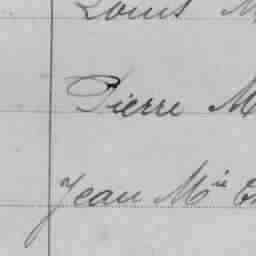 Louis M
Pierre M
Jean Mie E